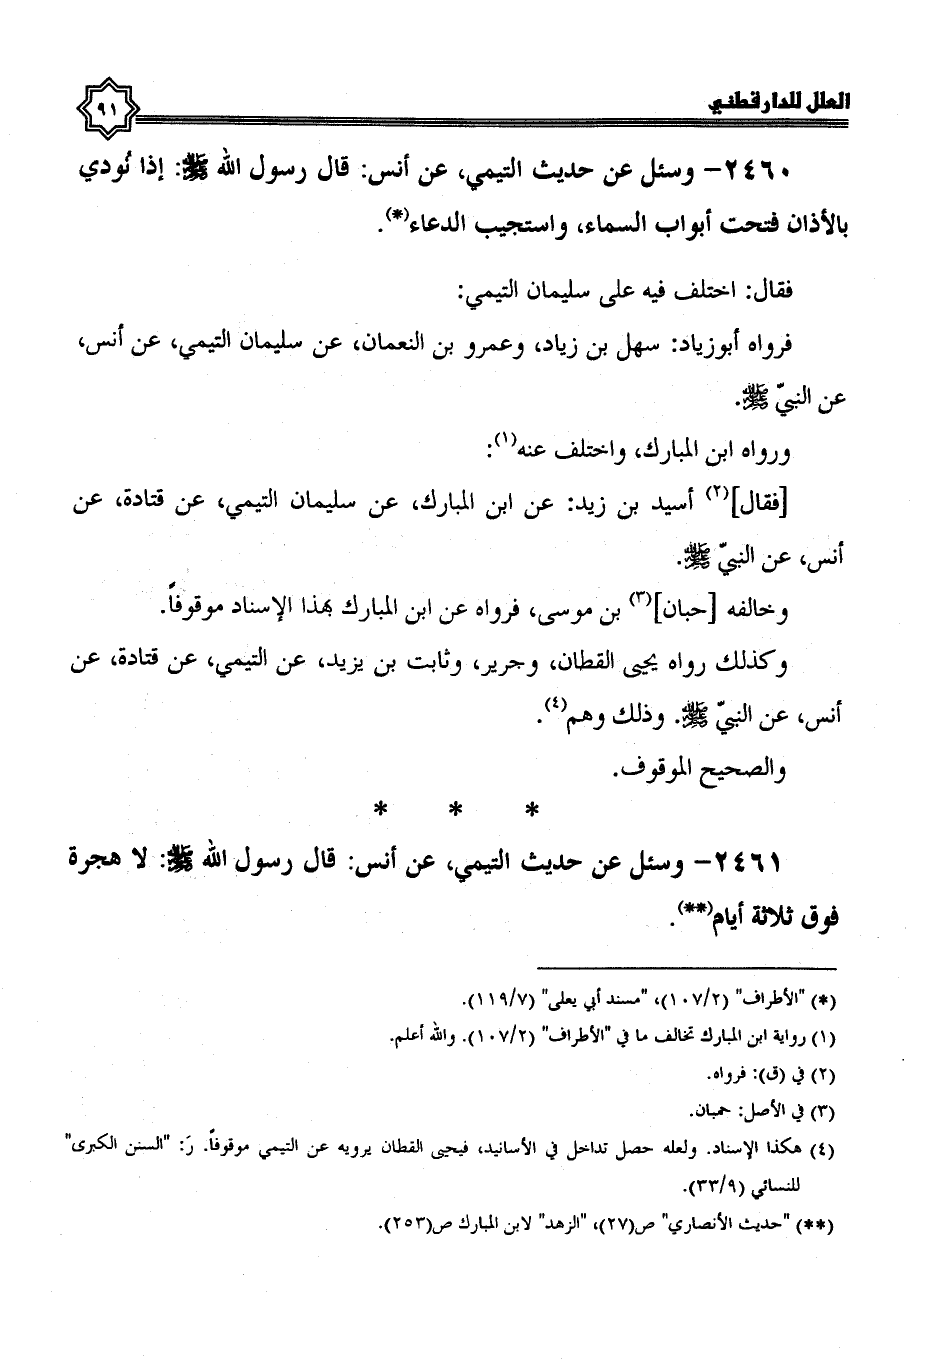 العلل للدارقطني
٩١
٢٤٦٠- وسئل عن حديث التيمي، عن أنس: قال رسول الله ﷺ: إذا نُودي
بالأذان فتحت أبواب السماء، واستجيب الدعاء(*).
فقال: اختلف فيه على سليمان التيمي:
فرواه أبوزياد: سهل بن زياد، وعمرو بن النعمان، عن سليمان التيمي، عن أنس،
عن النبيّ ﷺ.
ورواه ابن المبارك، واختلف عنه(١):
[فقال](٢) أسيد بن زيد: عن ابن المبارك، عن سليمان التيمي، عن قتادة، عن
أنس، عن النبيّ ﷺ.
وخالفه [حبان](٣) بن موسى، فرواه عن ابن المبارك بهذا الإسناد موقوفاً.
وكذلك رواه يحيى القطان، وجرير، وثابت بن يزيد، عن التيمي، عن قتادة، عن
أنس، عن النبيّ ﷺ. وذلك وهم(٤).
والصحيح الموقوف.
* * *
٢٤٦١- وسئل عن حديث التيمي، عن أنس: قال رسول الله ﷺ: لا هجرة
فوق ثلاثة أيام(**).
(*) "الأطراف" (١٠٧/٢)، "مسند أبي يعلى" (١١٩/٧).
(١) رواية ابن المبارك تخالف ما في "الأطراف" (١٠٧/٢). والله أعلم.
(٢) في (ق): فرواه.
(٣) في الأصل: حمبان.
(٤) هكذا الإسناد. ولعله حصل تداخل في الأسانيد، فيحيى القطان يرويه عن التيمي موقوفاً. رَ: "السنن الكبرى"
للنسائي (٣٣/٩).
(**) "حديث الأنصاري" ص(٢٧)، "الزهد" لابن المبارك ص(٢٥٣).